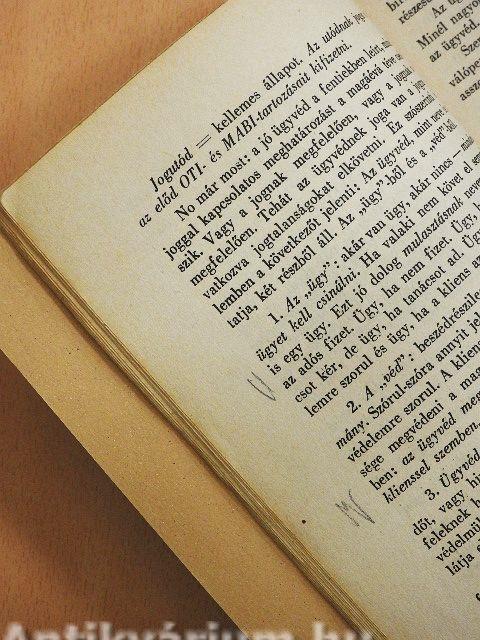 Jogutód = kellemes állapot. Az utódnak jog
az előd OTI- és MABI-tartozásait kifizetni.
No már most: a jó ügyvéd a fentiekben leírt,
joggal kapcsolatos meghatározást a magáévá téve
szik. Vagy a jognak megfelelően, vagy a jognak
megfelelően. Tehát az ügyvédnek joga van a
vatkozva jogtalanságokat elkövetni. Ez szószerint
lemben a következőt jelenti: Az ügyvéd, mint neve
tatja, két részből áll. Az „ügy"-ből és a „véd"-ből.
1. Az „ügy": akár van ügy, akár nincs —
ügyet kell csinálni. Ha valaki nem követ el
is egy ügy. Ezt jó dolog mulasztásnak
az adós fizet. Ügy, ha nem fizet. Ügy,
csot kér, de ügy, ha tanácsot ad.
lemre szorul és ügy, ha a kliens az
2. A „véd": beszédrészile
mány. Szórul-szóra annyit jel
védelemre szorul. A kliens
sége megvédeni a mag
ben: az ügyvéd meg
klienssel szemben.
3. Ügyvéd
dőt, vagy
feleknek
védelmü
látja
részese
Az üg
Minél nagyo
az ügyvéd
Sze
válóper
assz
Antikvárium.hu